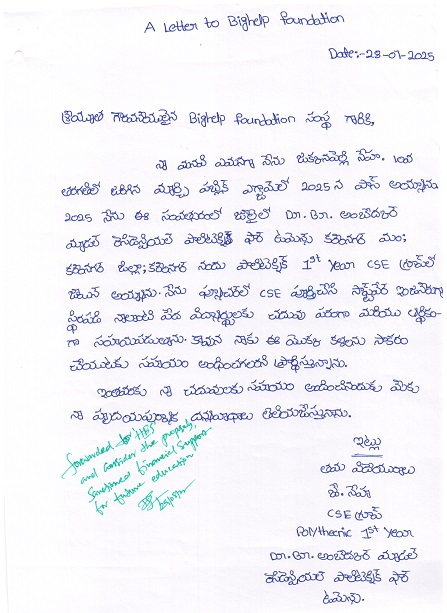 A Letter to Bighelp Foundation
Date:-28-07-2025
శ్రీయుత గౌరవనీయులైన Bighelp foundation సంస్థ గారికి,
నా మనవి ఏమనగా నేను సేహా. 10వ
తరగతిలో జరిగిన మార్చి పబ్లిక్ ఎగ్జామ్‌లో 2025 న పాస్ అయ్యాను
2025 నేను ఈ సంవత్సరంలో జూలైలో Dr. BR. అంబేద్కర్
మ్యాడల్ రెసిడెన్షియల్ పాలిటెక్నిక్ ఫార్ ఉమెన్స్ కరీంనగర్ మం;
కరీంనగర్ జిల్లా; కరీంనగర్ నందు పాలిటెక్నిక్ 1st Year CSE గ్రూప్‌లో
జాయిన్ అయ్యాను. నేను ఫ్యూచర్‌లో CSE పూర్తిచేసి సాఫ్ట్‌వేర్ ఇంజనీర్‌గా
స్థిరపడి నాలాంటి పేద విద్యార్థులకు చదువు పరంగా మరియు ఆర్థికం-
గా సహాయపడుతాను. కావున నాకు ఈ యొక్క కళలను సాకారం
చేయుటకు సహాయం అందించగలరని ప్రార్థిస్తున్నాను.
ఇంతవరకు నా చదువులకు సహాయం అందించినందుకు మీకు
నా హృదయపూర్వక ధన్యవాదాలు తెలియజేస్తున్నాను.
forwarded to HBS
and consider the proposal,
Sanctioned financial support
for future education
ఇట్లు
తమ విధేయురాలు
జే. సేహా
CSE గ్రూప్
Polythecnic 1st Year
Dr. BR. అంబేద్కర్ మ్యాడల్
రెసిడెన్షియల్ పాలిటెక్నిక్ ఫార్
ఉమెన్స్.